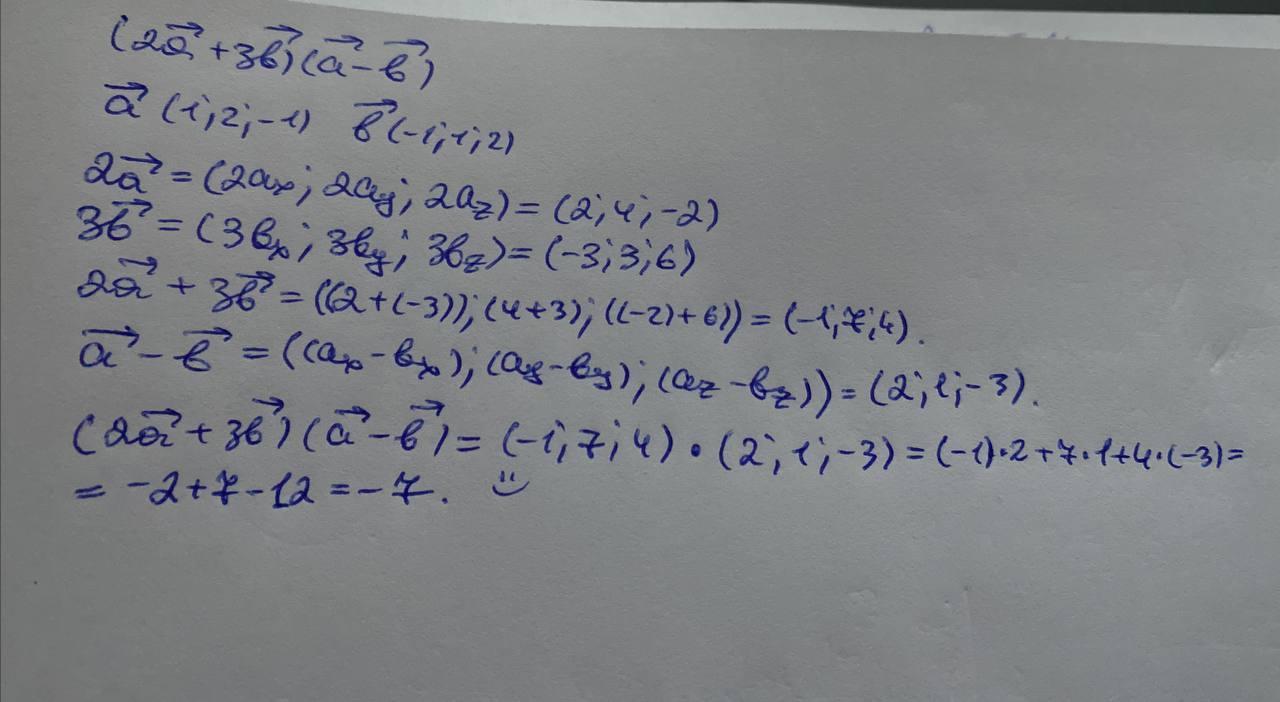 (2a⃗ + 3b⃗)(a⃗ − b⃗)
a⃗ (1; 2; −1) b⃗ (−1; 1; 2)
2a⃗ = (2aₓ; 2aᵧ; 2a_z) = (2; 4; −2)
3b⃗ = (3bₓ; 3bᵧ; 3b_z) = (−3; 3; 6)
2a⃗ + 3b⃗ = ((2+(−3)); (4+3); ((−2)+6)) = (−1; 7; 4).
a⃗ − b⃗ = ((aₓ−bₓ); (aᵧ−bᵧ); (a_z−b_z)) = (2; 1; −3).
(2a⃗ + 3b⃗)(a⃗ − b⃗) = (−1; 7; 4) · (2; 1; −3) = (−1)·2+7·1+4·(−3)=
= −2+7−12 = −7. ☺